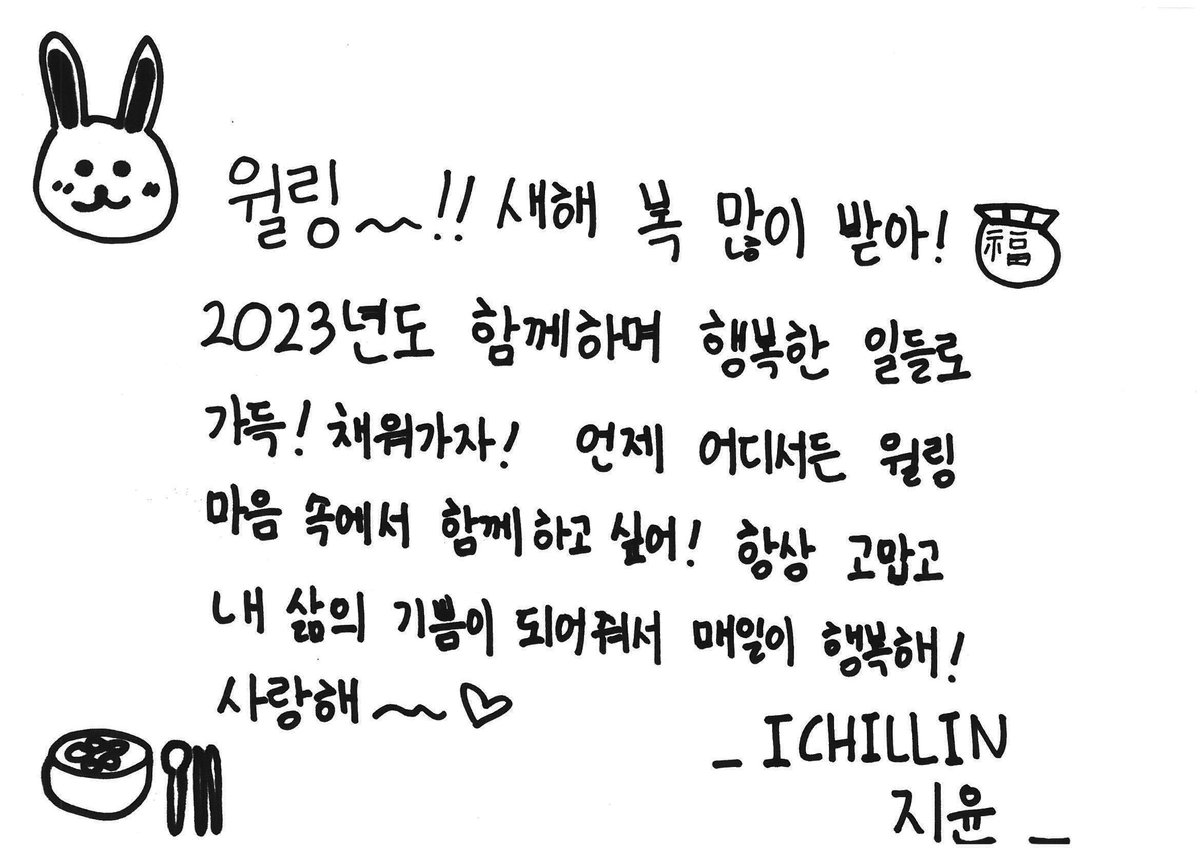 윌링~!! 새해 복 많이 받아! 福
2023년도 함께하며 행복한 일들로
가득! 채워가자! 언제 어디서든 윌링
마음 속에서 함께하고 싶어! 항상 고맙고
내 삶의 기쁨이 되어줘서 매일이 행복해!
사랑해~♡
_ ICHILLIN
지윤 _